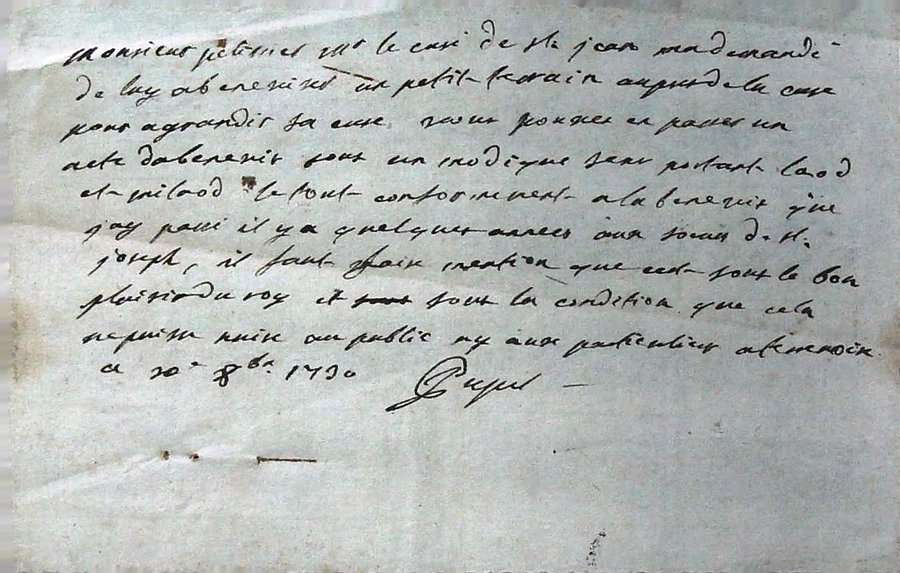 monsieur le curé de st jean ma demandé
de luy abeneviser un petit terrain aupres de la cure
pour agrandir sa cure vous pouvez en passer un
acte dabenevis sous un modique sens portant laod
et milaod le tout conformement a labenevis que
jay passé il y a quelques années aux soeurs de st.
joseph, il faut faire mention que cest sous le bon
plaisir du roy et sous la condition que cela
ne puisse nuire au public ny aux particuliers
a 10e 8bre 1730